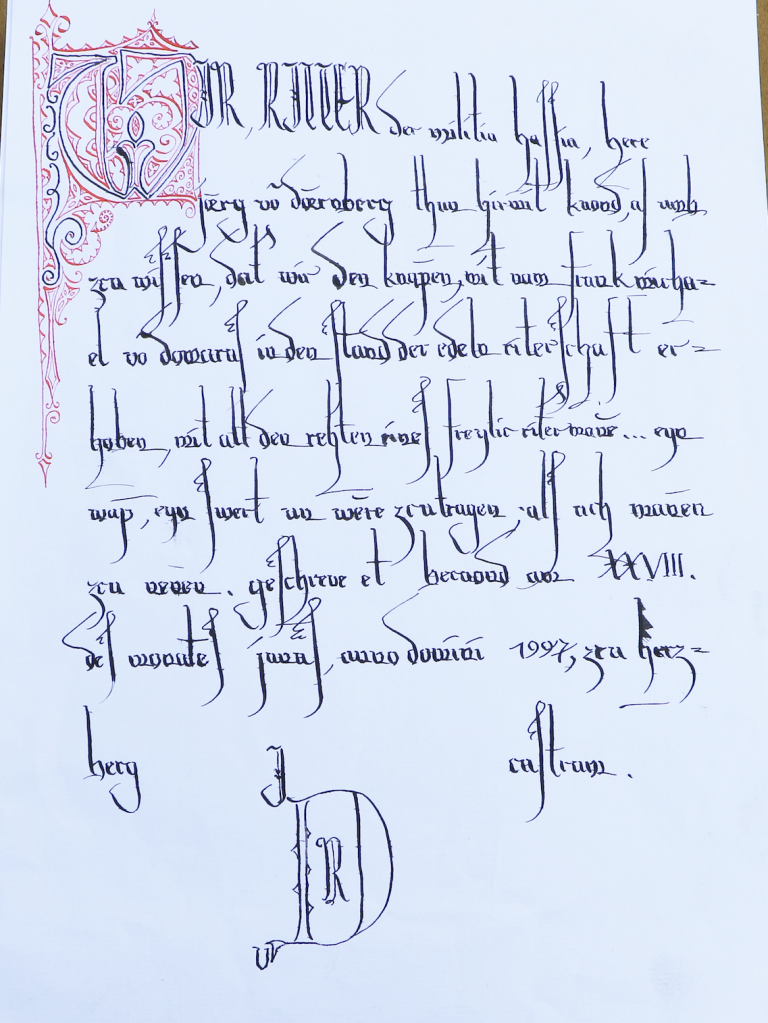 WIR, RITTER der militia hassia, here
jœrg vō dœrnberg thun hirmit kund, al und
zcu wissen, dat wir den knapen, mit nam frank micha=
el vō domiral in den stand der edeln riterschaft er=
hoben, mit all den rehten eines freylic riter mans... eyn
wap, eyn swert un wēre zcu tragen, als ach manen
zcu nenen. geschreve et becand am XXVIII.
del monates junal, anno domini 1997, zcu herz=
berg castrum.
J
D
R
v